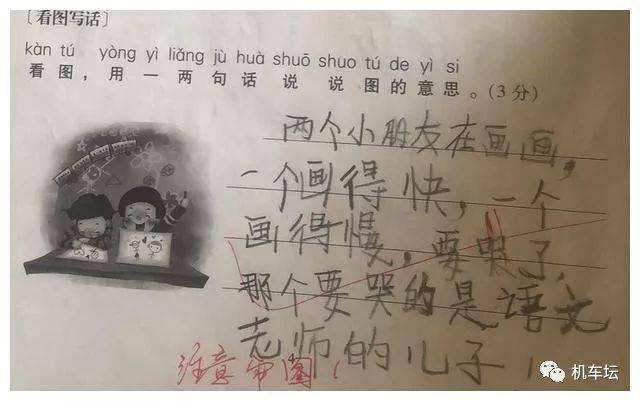 [看图写话]
kàn tú yòng yì liǎng jù huà shuō shuo tú de yì si
看图，用一两句话说说图的意思。(3分)
两个小朋友在画画，
一个画得快，一个
画得慢，要哭了，
那个要哭的是语文
老师的儿子！
注意审图！
机车坛